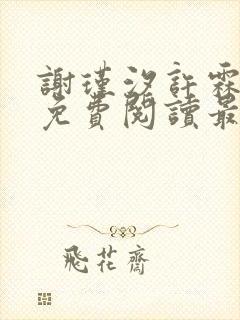 謝瑾汐許霖
免費閱讀最
飛花齋